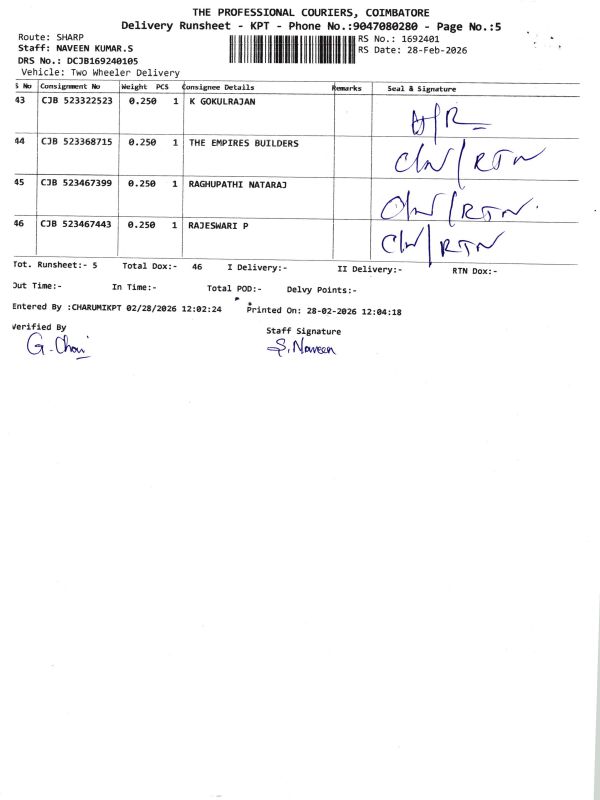 THE PROFESSIONAL COURIERS, COIMBATORE
Delivery Runsheet - KPT - Phone No.:9047080280 - Page No.:5
Route: SHARP
Staff: NAVEEN KUMAR.S
DRS No.: DCJB169240105
Vehicle: Two Wheeler Delivery
RS No.: 1692401
RS Date: 28-Feb-2026
S No Consignment No Weight PCS Consignee Details Remarks Seal & Signature
43 CJB 523322523 0.250 1 K GOKULRAJAN
44 CJB 523368715 0.250 1 THE EMPIRES BUILDERS C/N/RTN
45 CJB 523467399 0.250 1 RAGHUPATHI NATARAJ /RTN
46 CJB 523467443 0.250 1 RAJESWARI P C/N/RTN
Tot. Runsheet:- 5 Total Dox:- 46 I Delivery:- II Delivery:- RTN Dox:-
Out Time:- In Time:- Total POD:- Delvy Points:-
Entered By :CHARUMIKPT 02/28/2026 12:02:24 Printed On: 28-02-2026 12:04:18
Verified By Staff Signature
S. Naveen